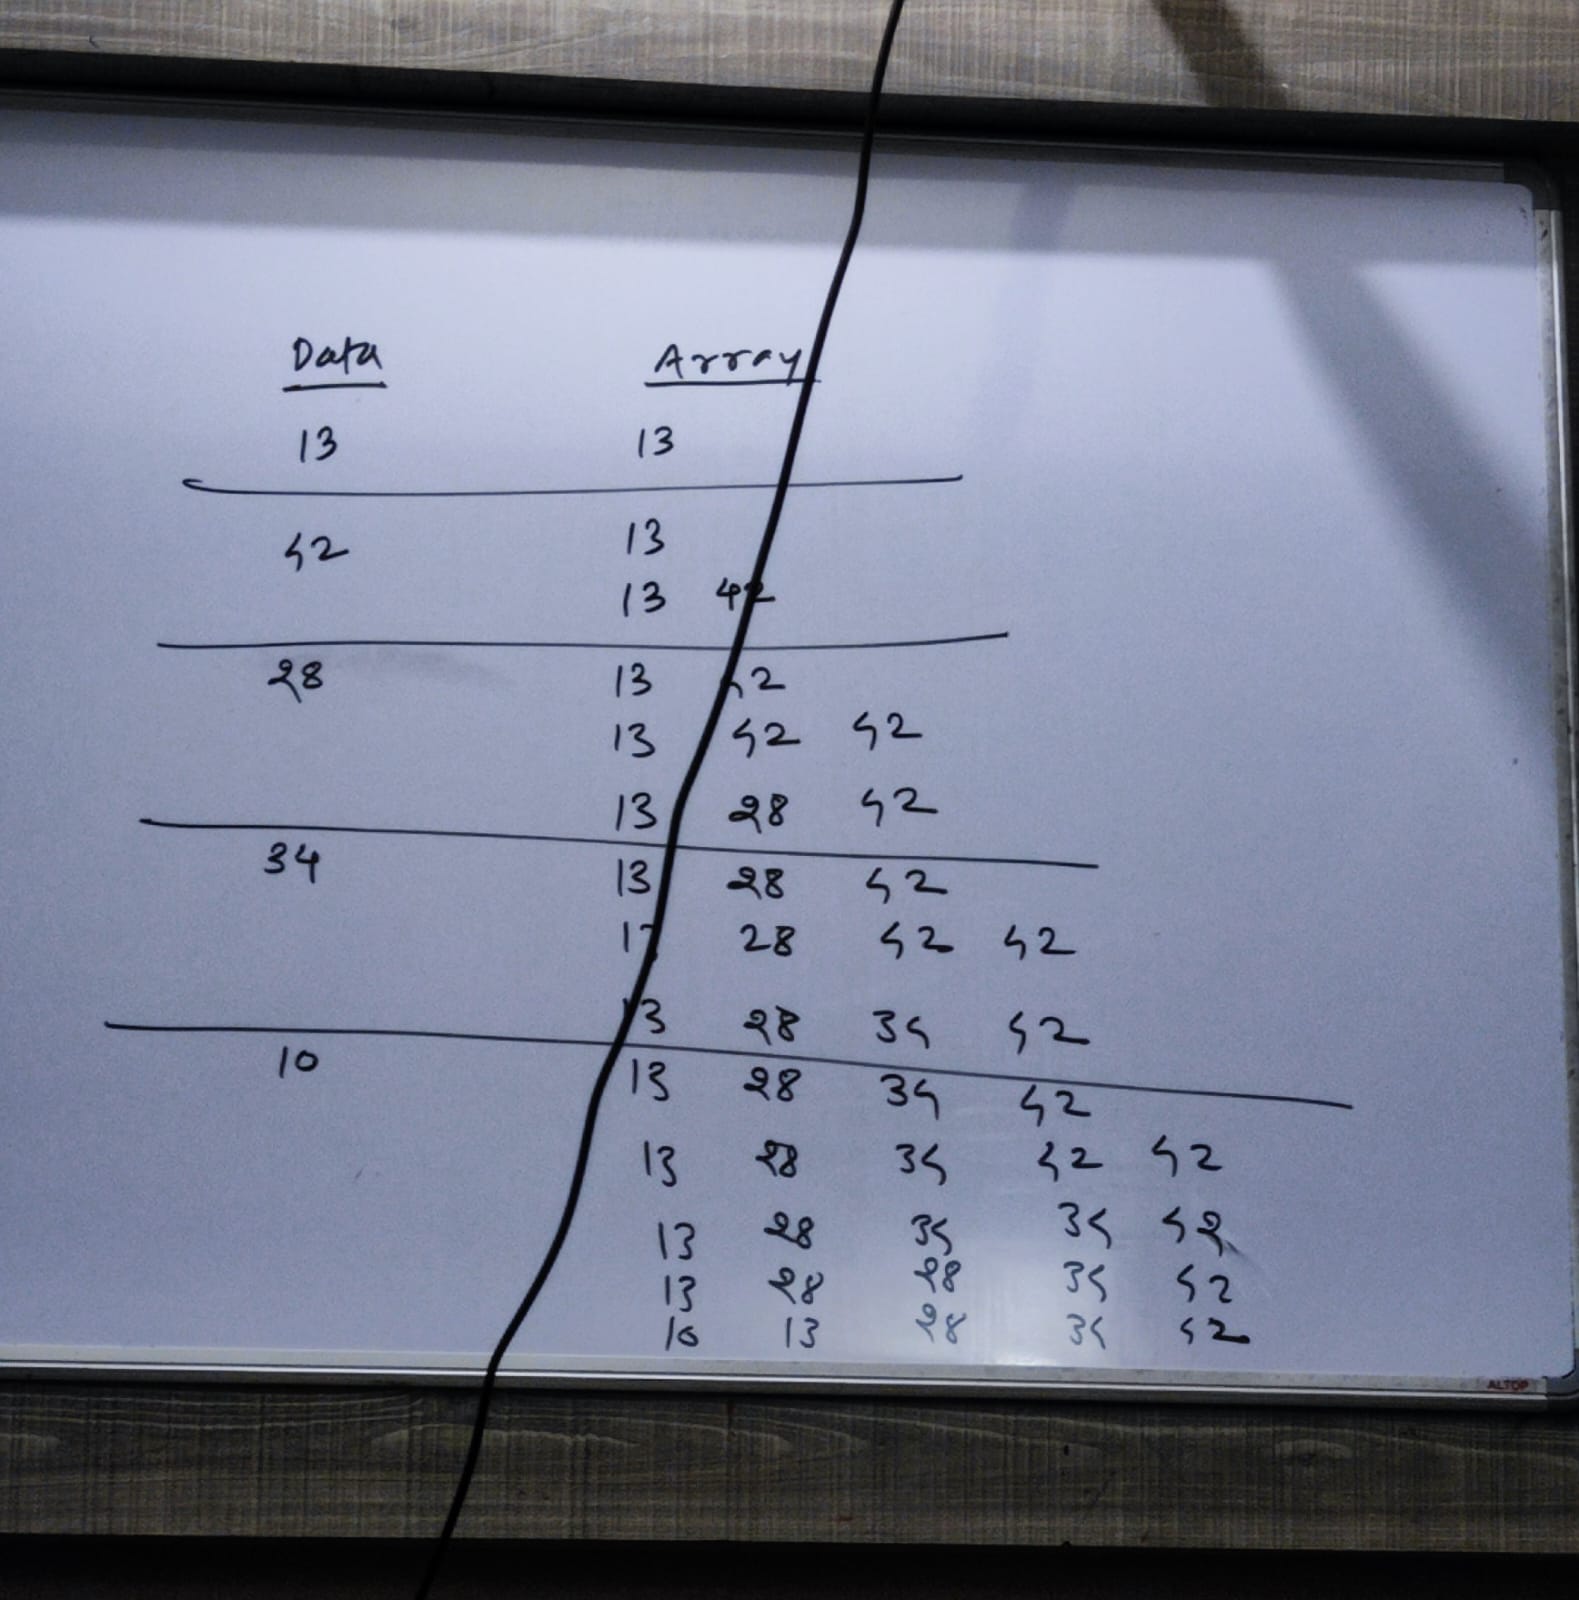 Data Array
13 13
42 13
13 42
28 13 42
13 42 42
13 28 42
34 13 28 42
13 28 42 42
13 28 34 42
10 13 28 34 42
13 28 34 42 42
13 28 34 34 42
13 28 28 34 42
10 13 28 34 42
ALTOP